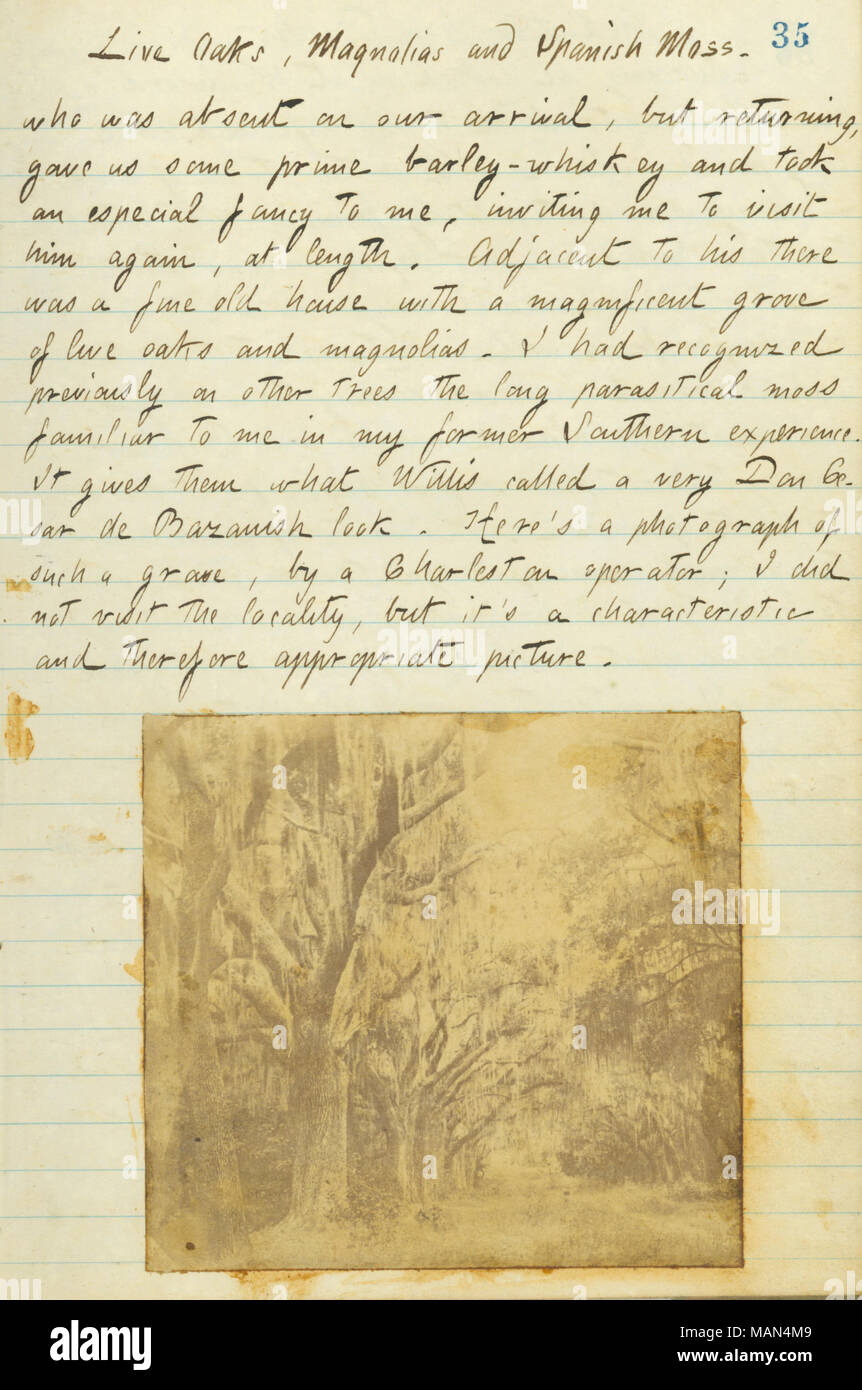 35
Live Oaks, Magnolias and Spanish Moss.
who was absent on our arrival, but returning,
gave us some prime barley-whiskey and took
an especial fancy to me, inviting me to visit
him again, at length. Adjacent to his there
was a fine old house with a magnificent grove
of live oaks and magnolias. I had recognized
previously on other trees the long parasitical moss
familiar to me in my former Southern experience.
It gives them what Willis called a very Don Ce-
sar de Bazanish look. Here's a photograph of
such a grove, by a Charleston operator; I did
not visit the locality, but it's a characteristic
and therefore appropriate picture.
a
alamy
alamy
Image ID: MAN4M9
www.alamy.com